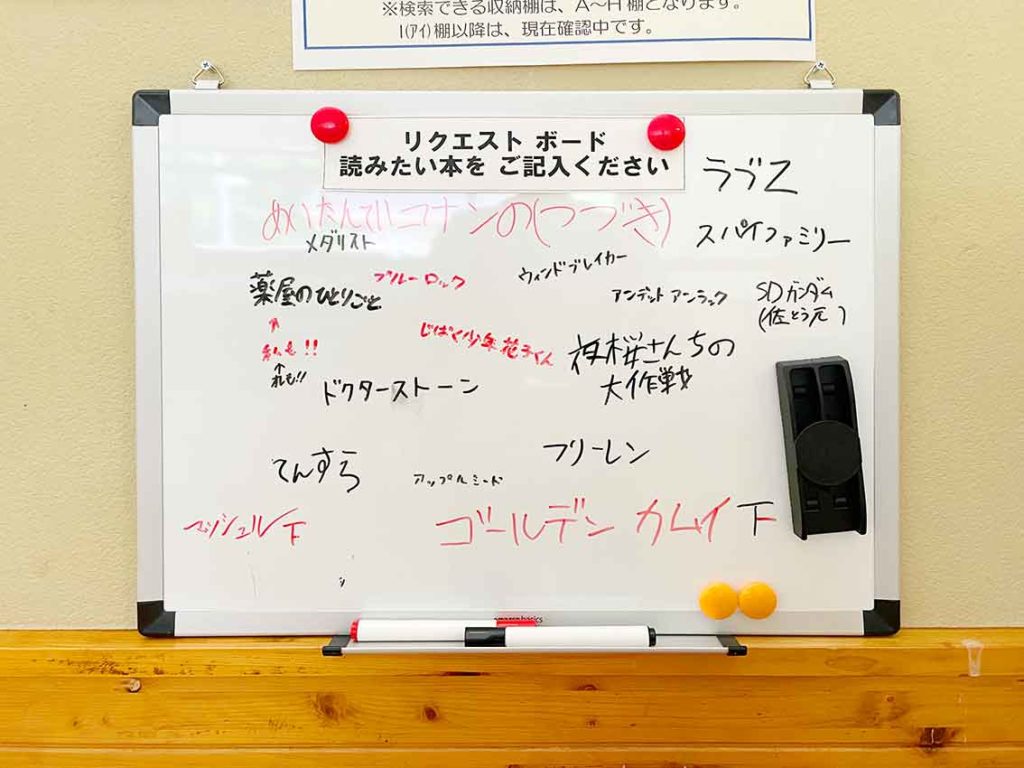 ※検索できる収納棚は、A～H 棚となります。
I(アイ)棚以降は、現在確認中です。
リクエスト ボード
読みたい本を ご記入ください
ラブZ
めいたんていコナンの(つづき)
メダリスト
スパイファミリー
ウィンドブレイカー
ブルーロック
薬屋のひとりごと
アンデットアンラック
SDガンダム
(佐とう元)
↑
私も!!
↑
れも!!
じばく少年花子くん
夜桜さんちの
大作戦
ドクターストーン
フリーレン
てんすら
アップルミード
マッシュル下
ゴールデン カムイ下
amazonbasics